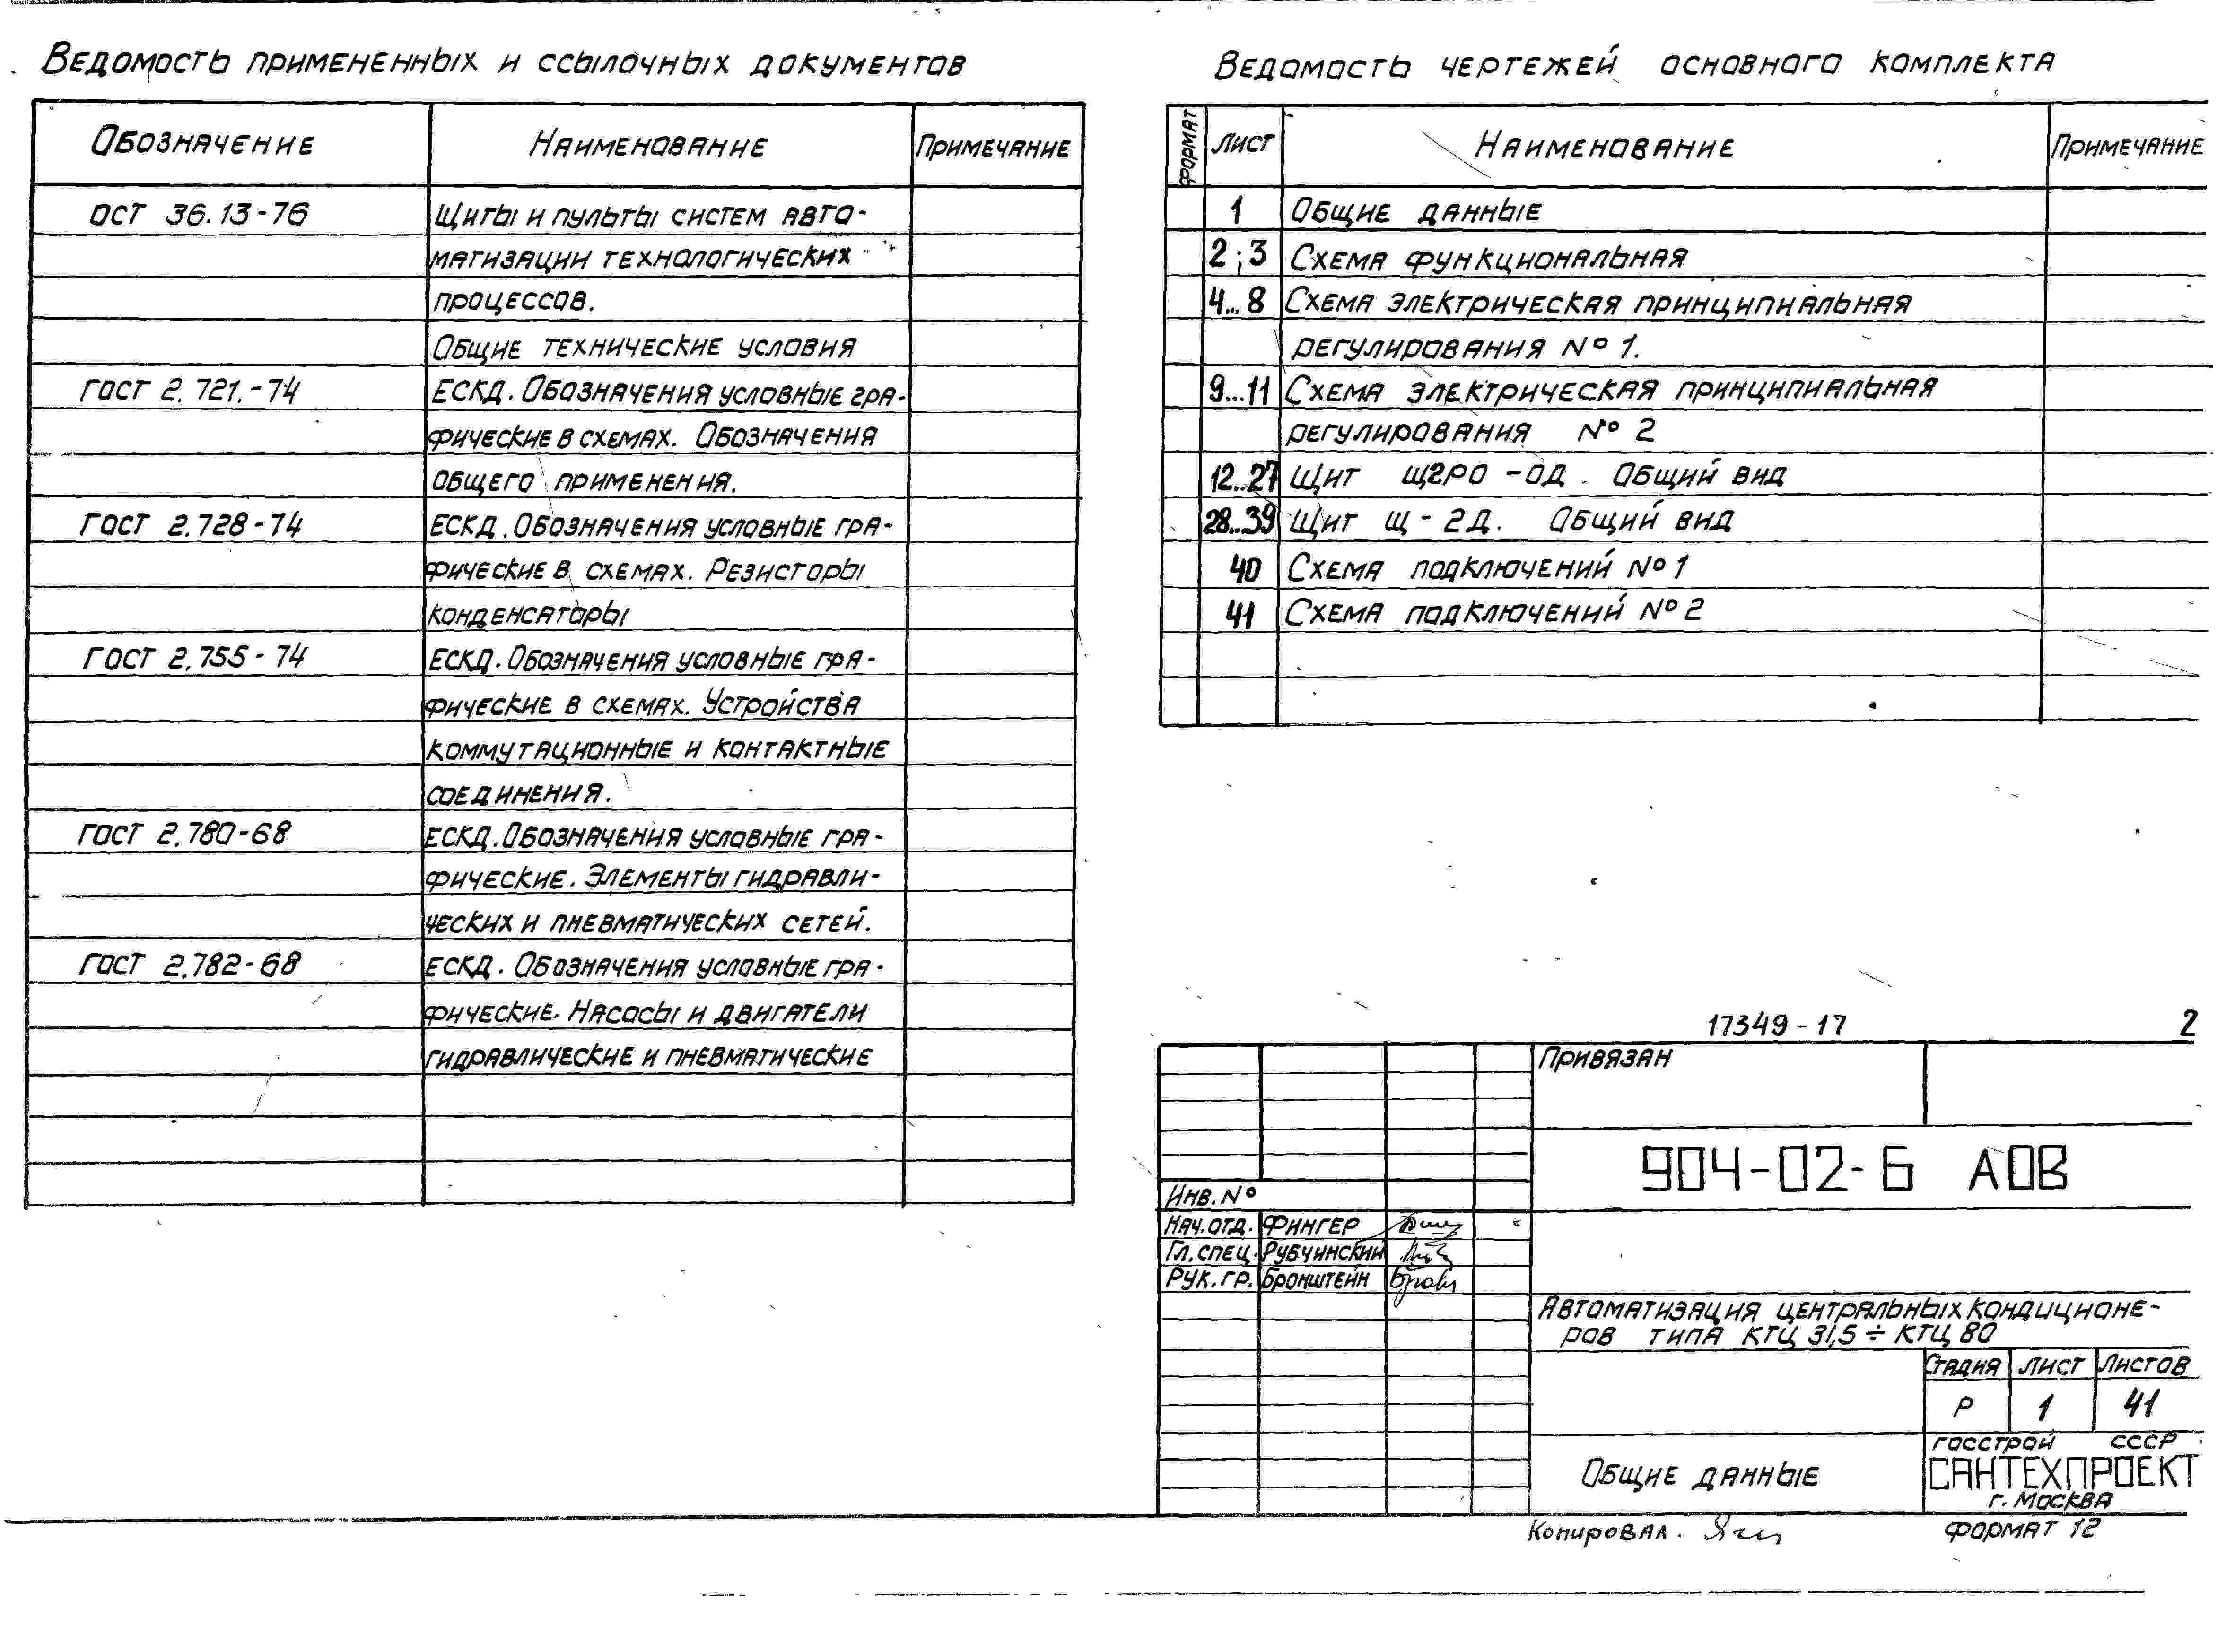 Ведомость примененных и ссылочных документов
Обозначение Наименование Примечание
ОСТ 36.13-76 Щиты и пульты систем авто-
матизации технологических
процессов.
Общие технические условия
ГОСТ 2.721.-74 ЕСКД. Обозначения условные гра-
фические в схемах. Обозначения
общего применения.
ГОСТ 2.728-74 ЕСКД. Обозначения условные гра-
фические в схемах. Резисторы
конденсаторы
ГОСТ 2.755-74 ЕСКД. Обозначения условные гра-
фические в схемах. Устройства
коммутационные и контактные
соединения.
ГОСТ 2.780-68 ЕСКД. Обозначения условные гра-
фические. Элементы гидравли-
ческих и пневматических сетей.
ГОСТ 2.782-68 ЕСКД. Обозначения условные гра-
фические. Насосы и двигатели
гидравлические и пневматические
Ведомость чертежей основного комплекта
Формат Лист Наименование Примечание
1 Общие данные
2; 3 Схема функциональная
4...8 Схема электрическая принципиальная
регулирования № 1.
9...11 Схема электрическая принципиальная
регулирования № 2
12..27 Щит ЩГРО-ОД. Общий вид
28..39 Щит Щ-2Д. Общий вид
40 Схема подключений № 1
41 Схема подключений № 2
17349-17 2
Привязан
904-02-6 АОВ
Инв. №
Нач. отд. Фингер
Гл. спец. Рубчинский
Рук. гр. Бронштейн
Автоматизация центральных кондиционе-
ров типа КТЦ 31,5 ÷ КТЦ 80
Стадия Лист Листов
Р 1 41
Общие данные
Госстрой СССР
САНТЕХПРОЕКТ
г. Москва
Копировал.
Формат 12